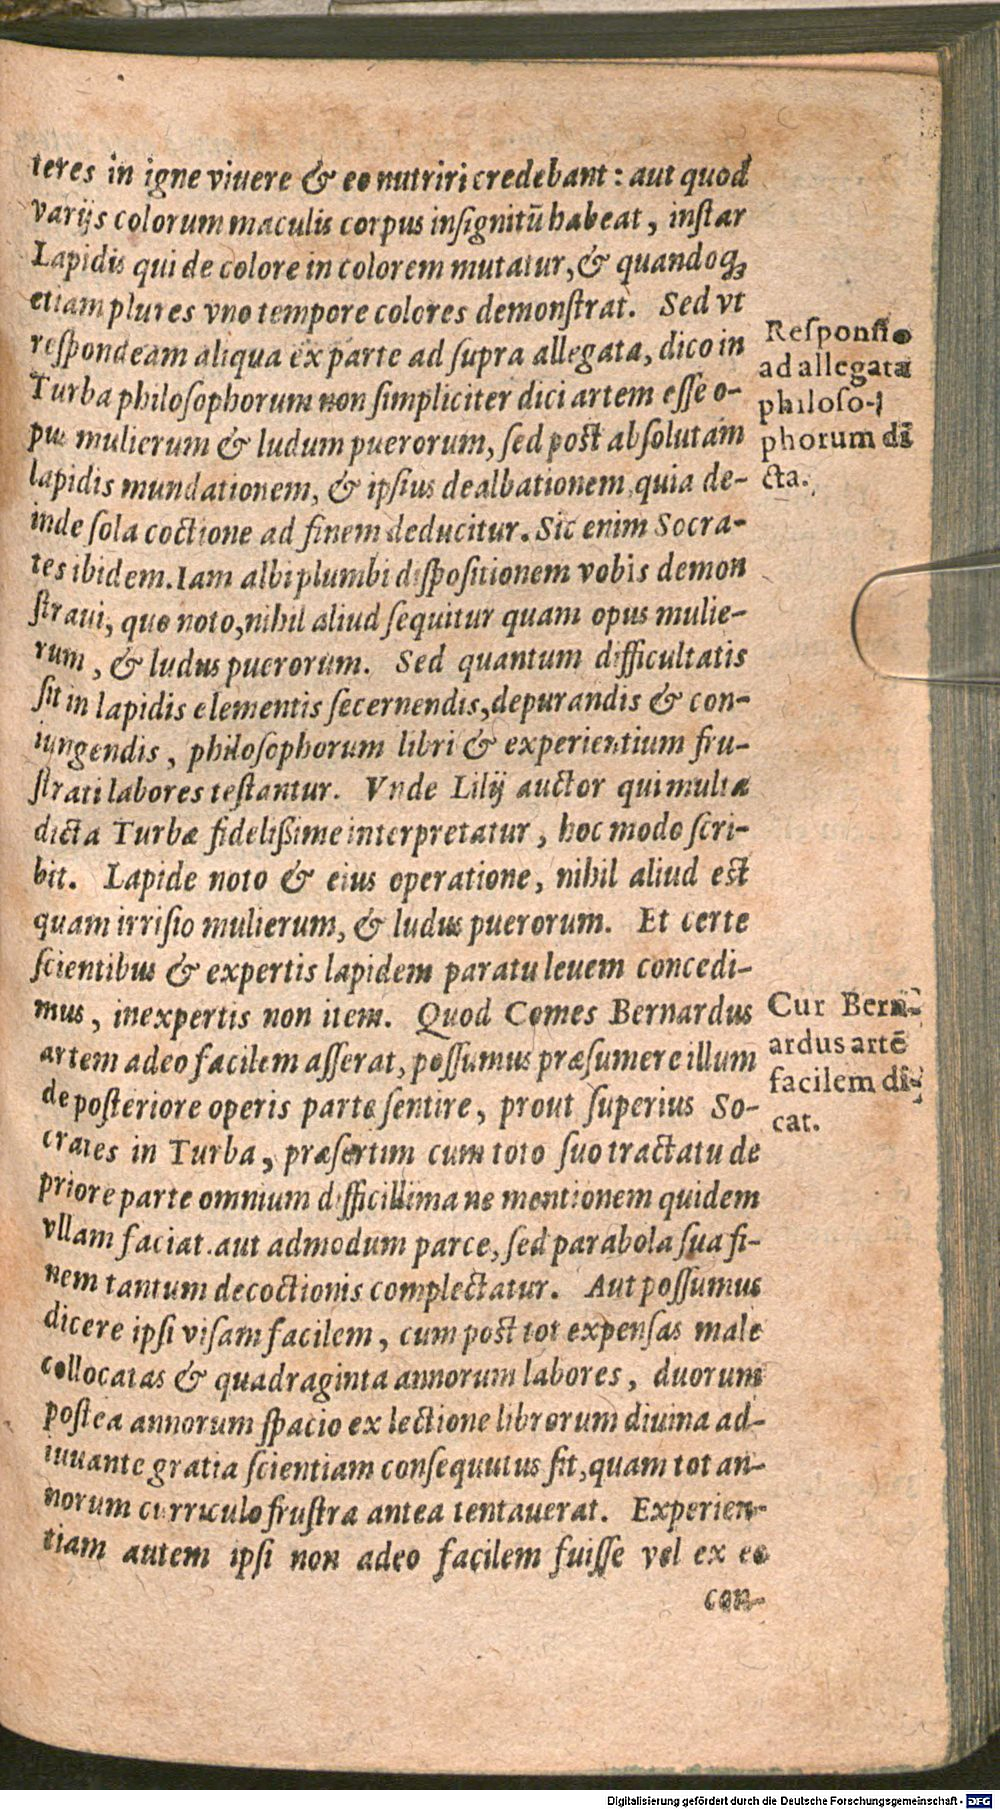 teres in igne viuere & eo nutriri credebant: aut quod
varijs colorum maculis corpus insignitū habeat, instar
Lapidis qui de colore in colorem mutatur, & quandoq;
etiam plures vno tempore colores demonstrat. Sed vt
respondeam aliqua ex parte ad supra allegata, dico in
Turba philosophorum non simpliciter dici artem esse o-
pus mulierum & ludum puerorum, sed post absolutam
lapidis mundationem, & ipsius dealbationem, quia de-
inde sola coctione ad finem deducitur. Sic enim Socra-
tes ibidem. Iam albi plumbi dispositionem vobis demon
straui, quo noto, nihil aliud sequitur quam opus mulie-
rum, & ludus puerorum. Sed quantum difficultatis
sit in lapidis elementis secernendis, depurandis & con-
iungendis, philosophorum libri & experientium fru-
strati labores testantur. Vnde Lilij auctor qui multa
dicta Turbæ fidelissime interpretatur, hoc modo scri-
bit. Lapide noto & eius operatione, nihil aliud est
quam irrisio mulierum, & ludus puerorum. Et certe
scientibus & expertis lapidem paratu leuem concedi-
mus, inexpertis non item. Quod Comes Bernardus
artem adeo facilem asserat, possumus præsumere illum
de posteriore operis parte sentire, prout superius So-
crates in Turba, præsertim cum toto suo tractatu de
priore parte omnium difficillima ne mentionem quidem
vllam faciat. aut admodum parce, sed parabola sua fi-
nem tantum decoctionis complectatur. Aut possumus
dicere ipsi visam facilem, cum post tot expensas male
collocatas & quadraginta annorum labores, duorum
postea annorum spacio ex lectione librorum diuina ad-
iuuante gratia scientiam consequutus sit, quam tot an-
norum curriculo frustra antea tentauerat. Experien-
tiam autem ipsi non adeo facilem fuisse vel ex eo
con-
Responsio
ad allegata
philoso-
phorum di
cta.
Cur Bern-
ardus artē
facilem di-
cat.
Digitalisierung gefördert durch die Deutsche Forschungsgemeinschaft - DFG